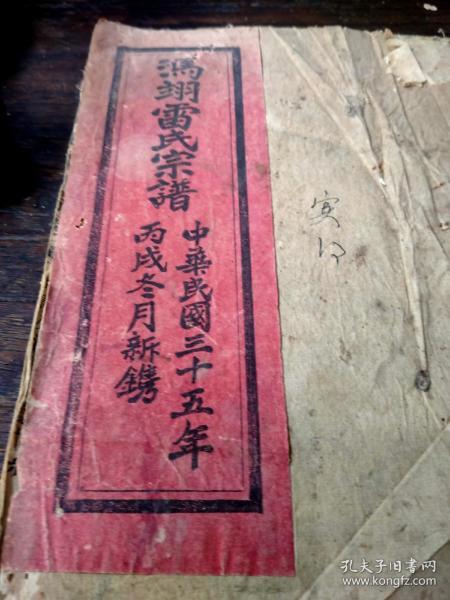 馮翊雷氏宗譜
中華民國三十五年
丙戌冬月新鐫
孔夫子旧书网
www.kongfz.com